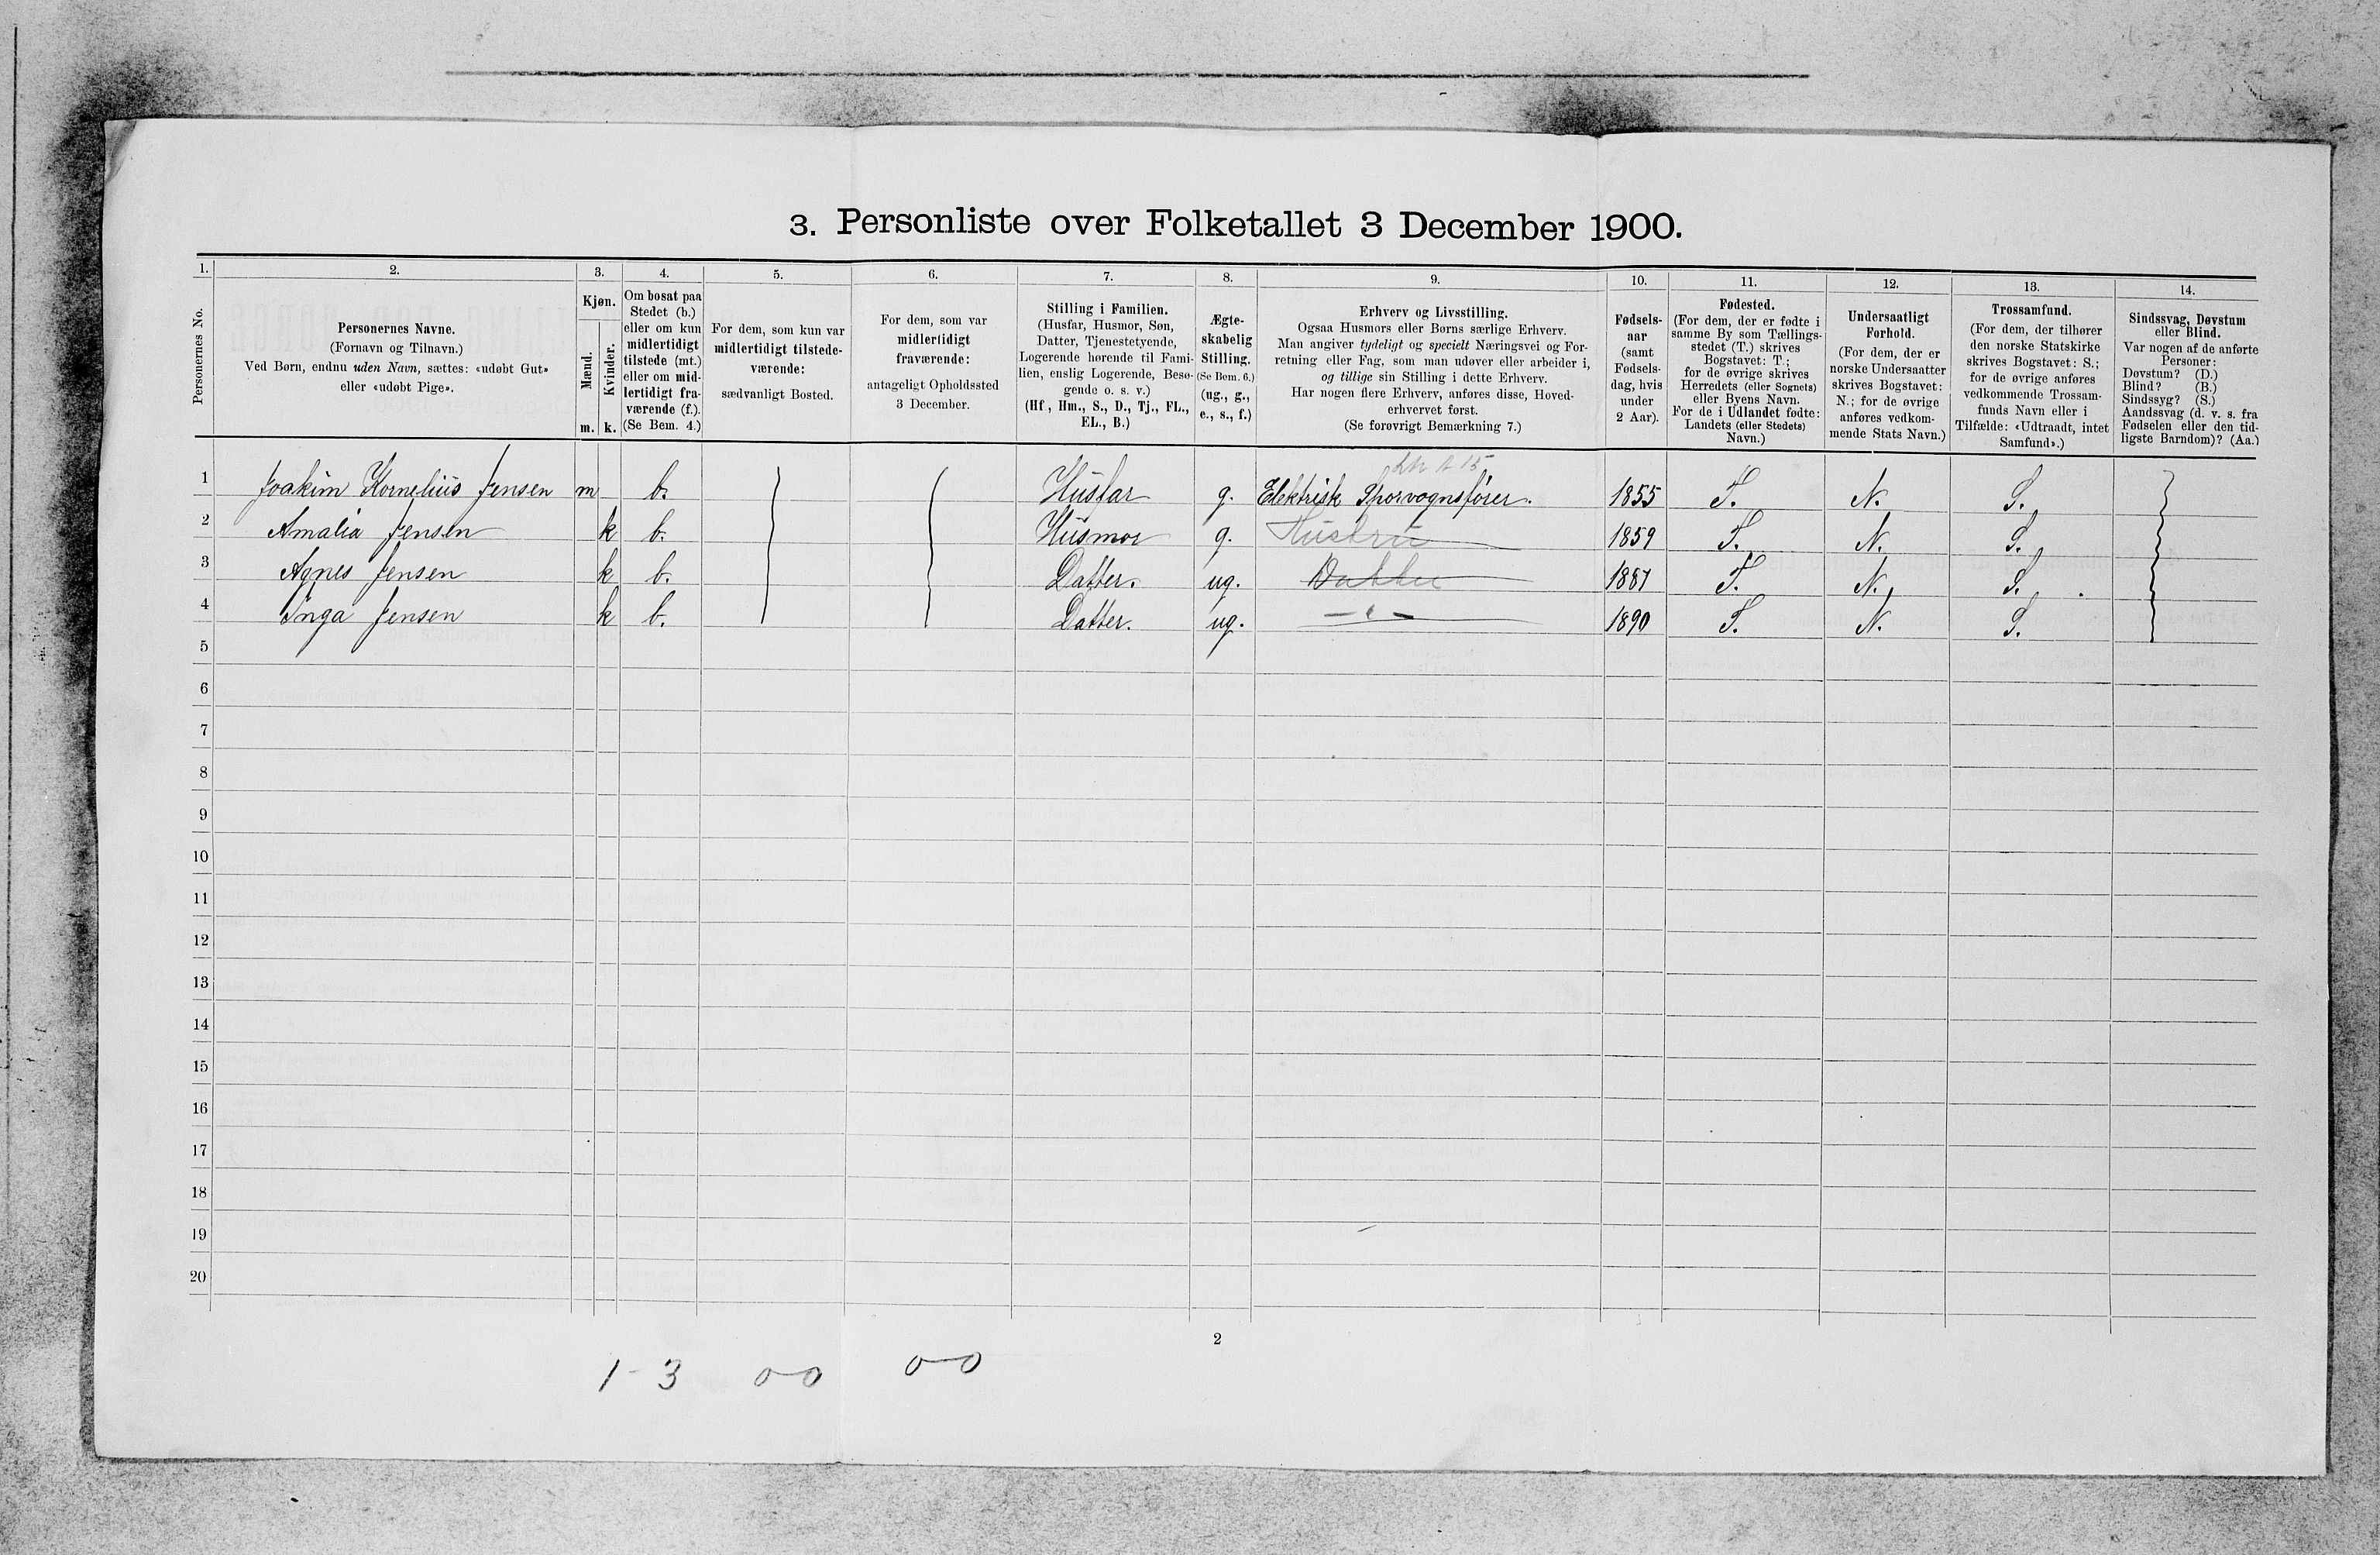 3. Personliste over Folketallet 3 December 1900.
1. 2. 3. 4. 5. 6. 7. 8. 9. 10. 11. 12. 13. 14.
Personernes No.
Personernes Navne.
(Fornavn og Tilnavn.)
Ved Børn, endnu uden Navn, sættes: «udøbt Gut»
eller «udøbt Pige».
Kjøn.
Mænd.
Kvinder.
m. k.
Om bosat paa
Stedet (b.)
eller om kun
midlertidigt
tilstede (mt.)
eller om mid-
lertidigt fra-
værende (f.).
(Se Bem. 4.)
For dem, som kun var
midlertidigt tilstede-
værende:
sædvanligt Bosted.
For dem, som var
midlertidigt
fraværende:
antageligt Opholdssted
3 December.
Stilling i Familien.
(Husfar, Husmor, Søn,
Datter, Tjenestetyende,
Logerende hørende til Fami-
lien, enslig Logerende, Besø-
gende o. s. v.)
(Hf., Hm., S., D., Tj., FL.,
EL., B.)
Ægte-
skabelig
Stilling.
(Se Bem. 6.)
(ug., g.,
e., s., f.)
Erhverv og Livsstilling.
Ogsaa Husmors eller Børns særlige Erhverv.
Man angiver tydeligt og specielt Næringsvei og For-
retning eller Fag, som man udøver eller arbeider i,
og tillige sin Stilling i dette Erhverv.
Har nogen flere Erhverv, anføres disse, Hoved-
erhvervet først.
(Se forøvrigt Bemærkning 7.)
Fødsels-
aar
(samt
Fødsels-
dag, hvis
under
2 Aar).
Fødested.
(For dem, der er fødte i
samme By som Tællings-
stedet (T.) skrives
Bogstavet: T.;
for de øvrige skrives
Herredets (eller Sognets)
eller Byens Navn.
For de i Udlandet fødte:
Landets (eller Stedets)
Navn.)
Undersaatligt
Forhold.
(For dem, der er
norske Undersaatter
skrives Bogstavet:
N.; for de øvrige
anføres vedkom-
mende Stats Navn.)
Trossamfund.
(For dem, der tilhører
den norske Statskirke
skrives Bogstavet: S.;
for de øvrige anføres
vedkommende Trossam-
funds Navn eller i
Tilfælde: «Udtraadt, intet
Samfund».)
Sindssvag, Døvstum
eller Blind.
Var nogen af de anførte
Personer:
Døvstum? (D.)
Blind? (B.)
Sindssyg? (S.)
Aandssvag (d. v. s. fra
Fødselen eller den tid-
ligste Barndom)? (Aa.)
1 Joakim Kornelius Jensen m b. Husfar g. Elektrisk Sporvognsfører. 1855 T. N. S.
2 Amalia Jensen k b. Husmor g. Hustru 1859 T. N. S.
3 Agnes Jensen k b. Datter. ug. Datter 1887 T. N. S.
4 Inga Jensen k b. Datter. ug. 1890 T. N. S.
5
6
7
8
9
10
11
12
13
14
15
16
17
18
19
20
2
1-3 00 00